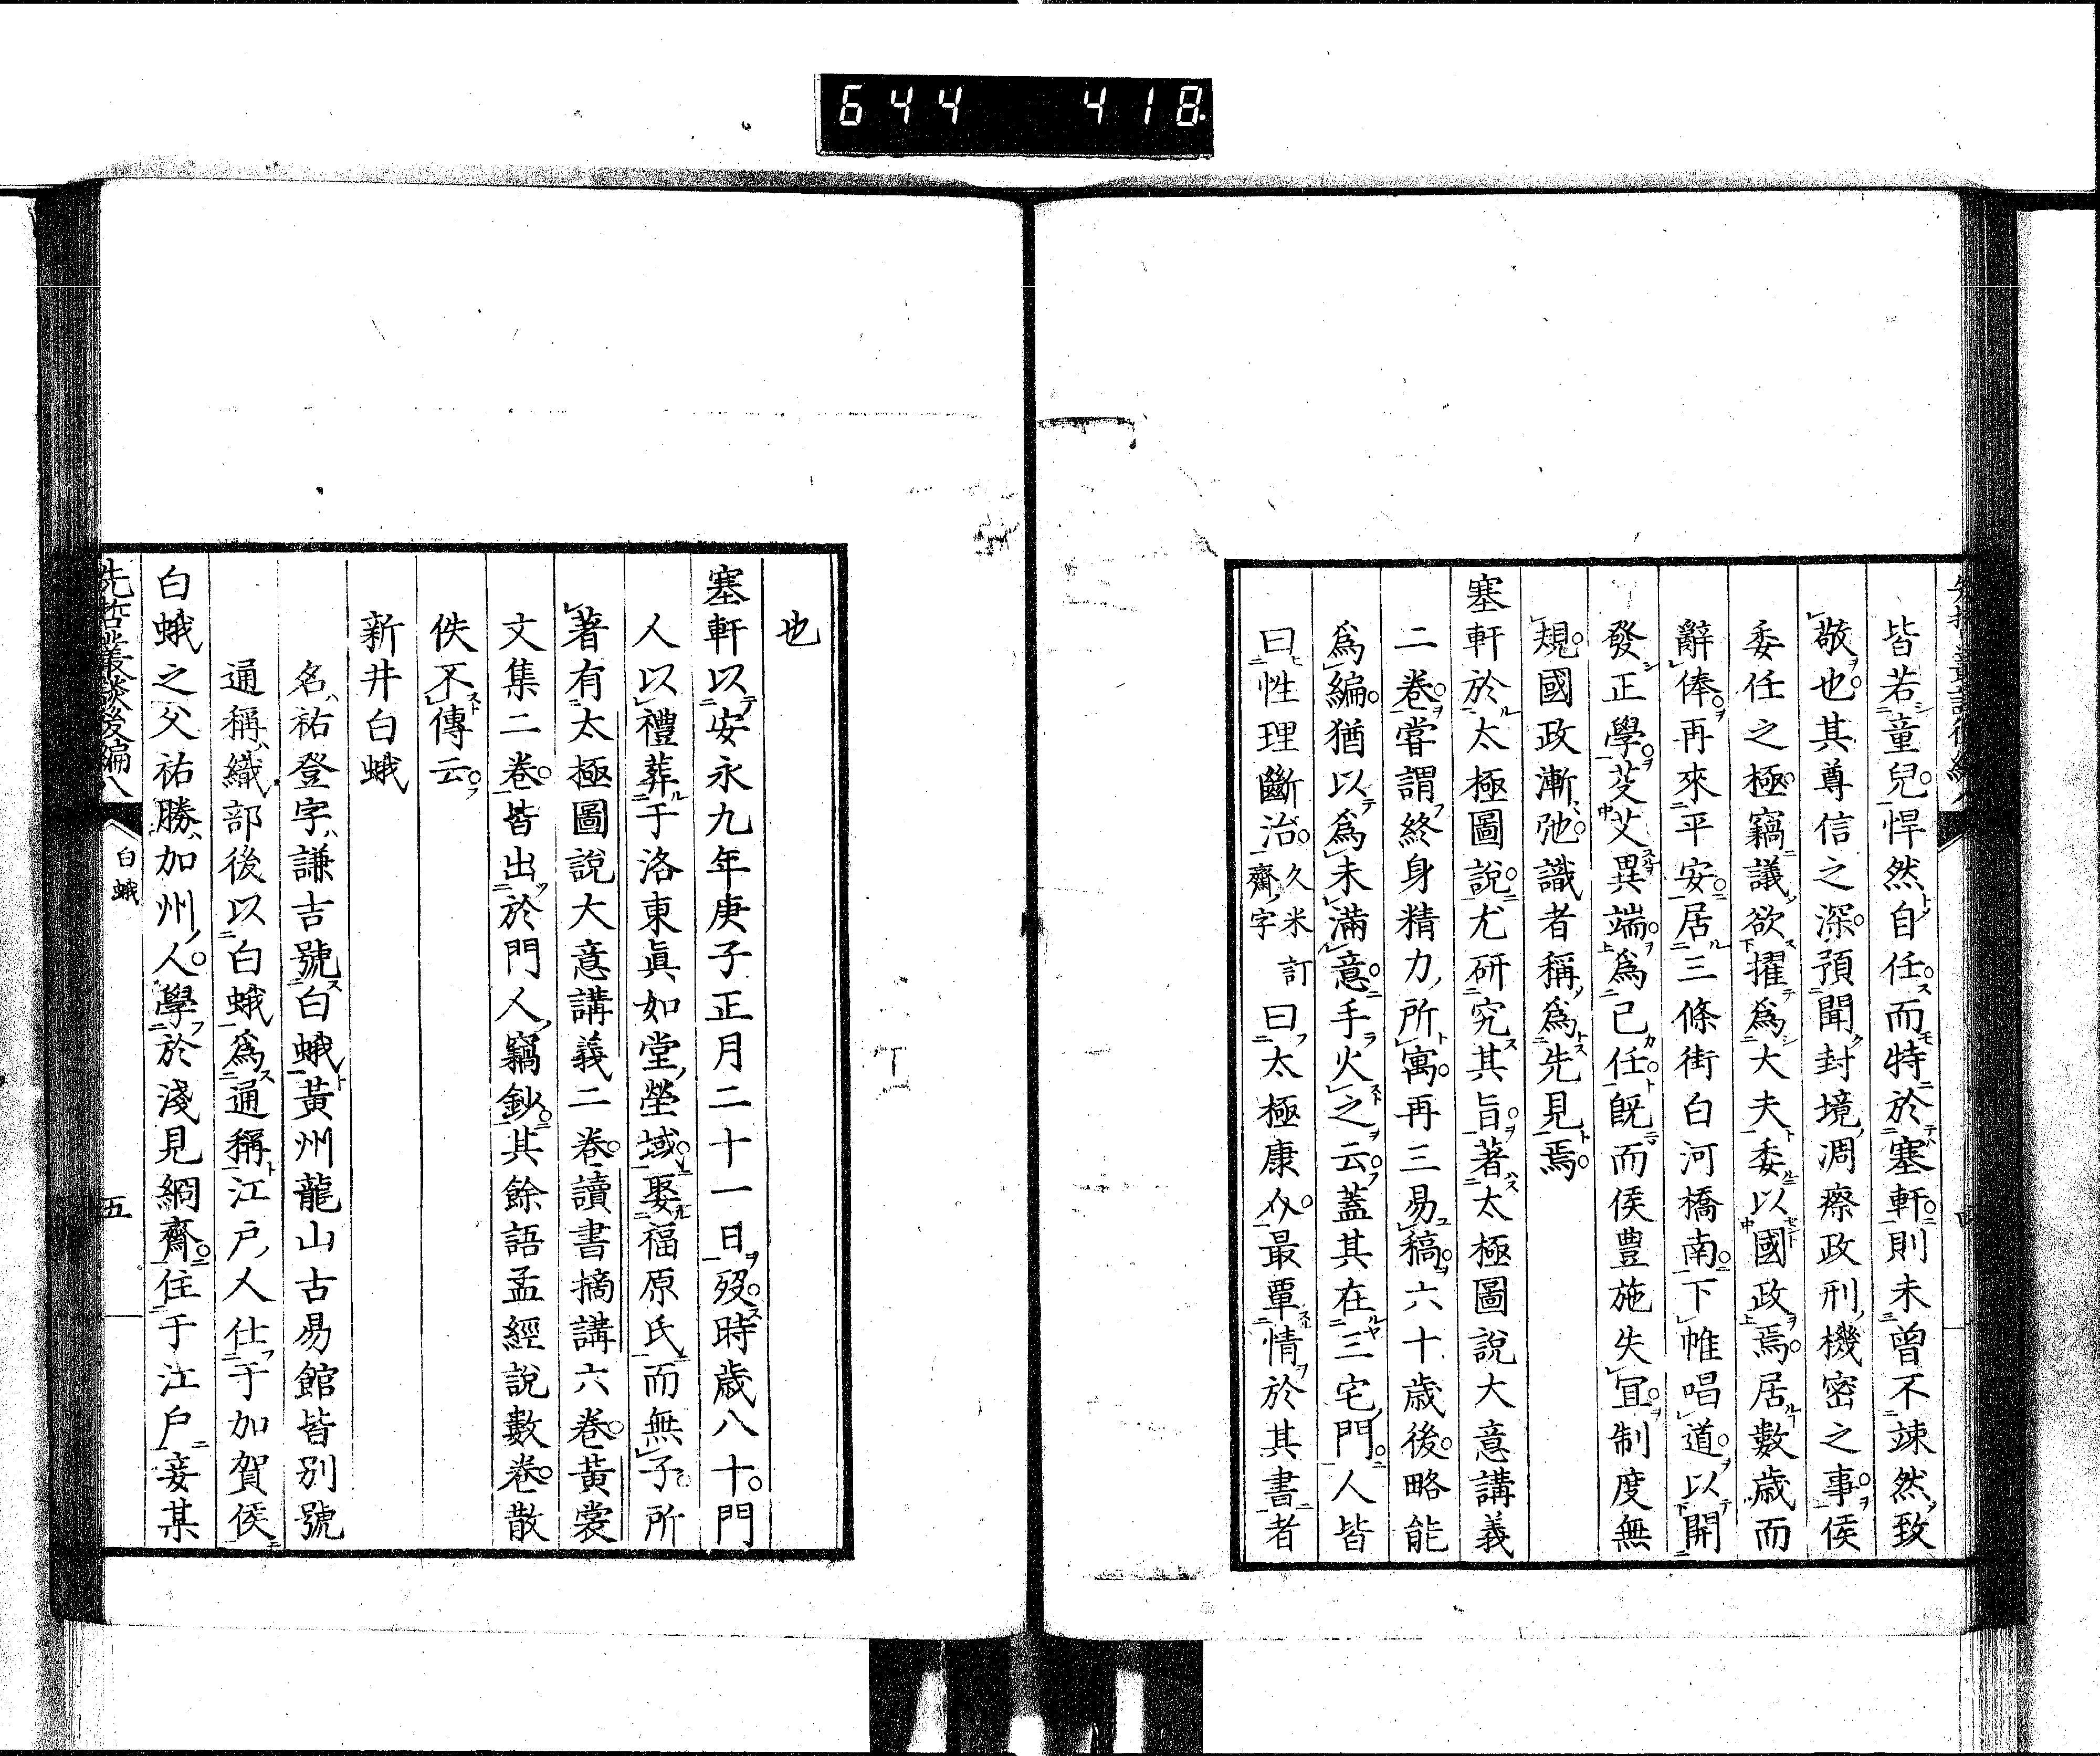 644 418
皆若童兒悍然自任而特於塞軒則未曾不竦然致
敬也其尊信之深預聞封境凋瘵政刑機密之事侯
委任之極竊議欲擢爲大夫委以國政焉居數歲而
辭俸再來平安居三條街白河橋南下帷唱道以開
發正學芟艾異端爲己任既而侯豊施失宜制度無
規國政漸弛識者稱爲先見焉
塞軒於太極圖說尤研究其旨著太極圖說大意講義
二卷嘗謂終身精力所寓再三易稿六十歲後略能
爲編猶以爲未滿意手火之云蓋其在三宅門人皆
曰性理斷治久米訂齋字曰太極康久最覃情於其書者
也
塞軒以安永九年庚子正月二十一日歿時歲八十門
人以禮葬于洛東眞如堂塋域娶福原氏而無子所
著有太極圖說大意講義二卷讀書摘講六卷黃裳
文集二卷皆出於門人竊鈔其餘語孟經說數卷散
佚不傳云
新井白蛾
名祐登字謙吉號白蛾黃州龍山古易館皆別號
通稱織部後以白蛾爲通稱江戶人仕于加賀侯
白蛾之父祐勝加州人學於淺見絅齋住于江戶妾某
先哲叢談後編八
白蛾
五